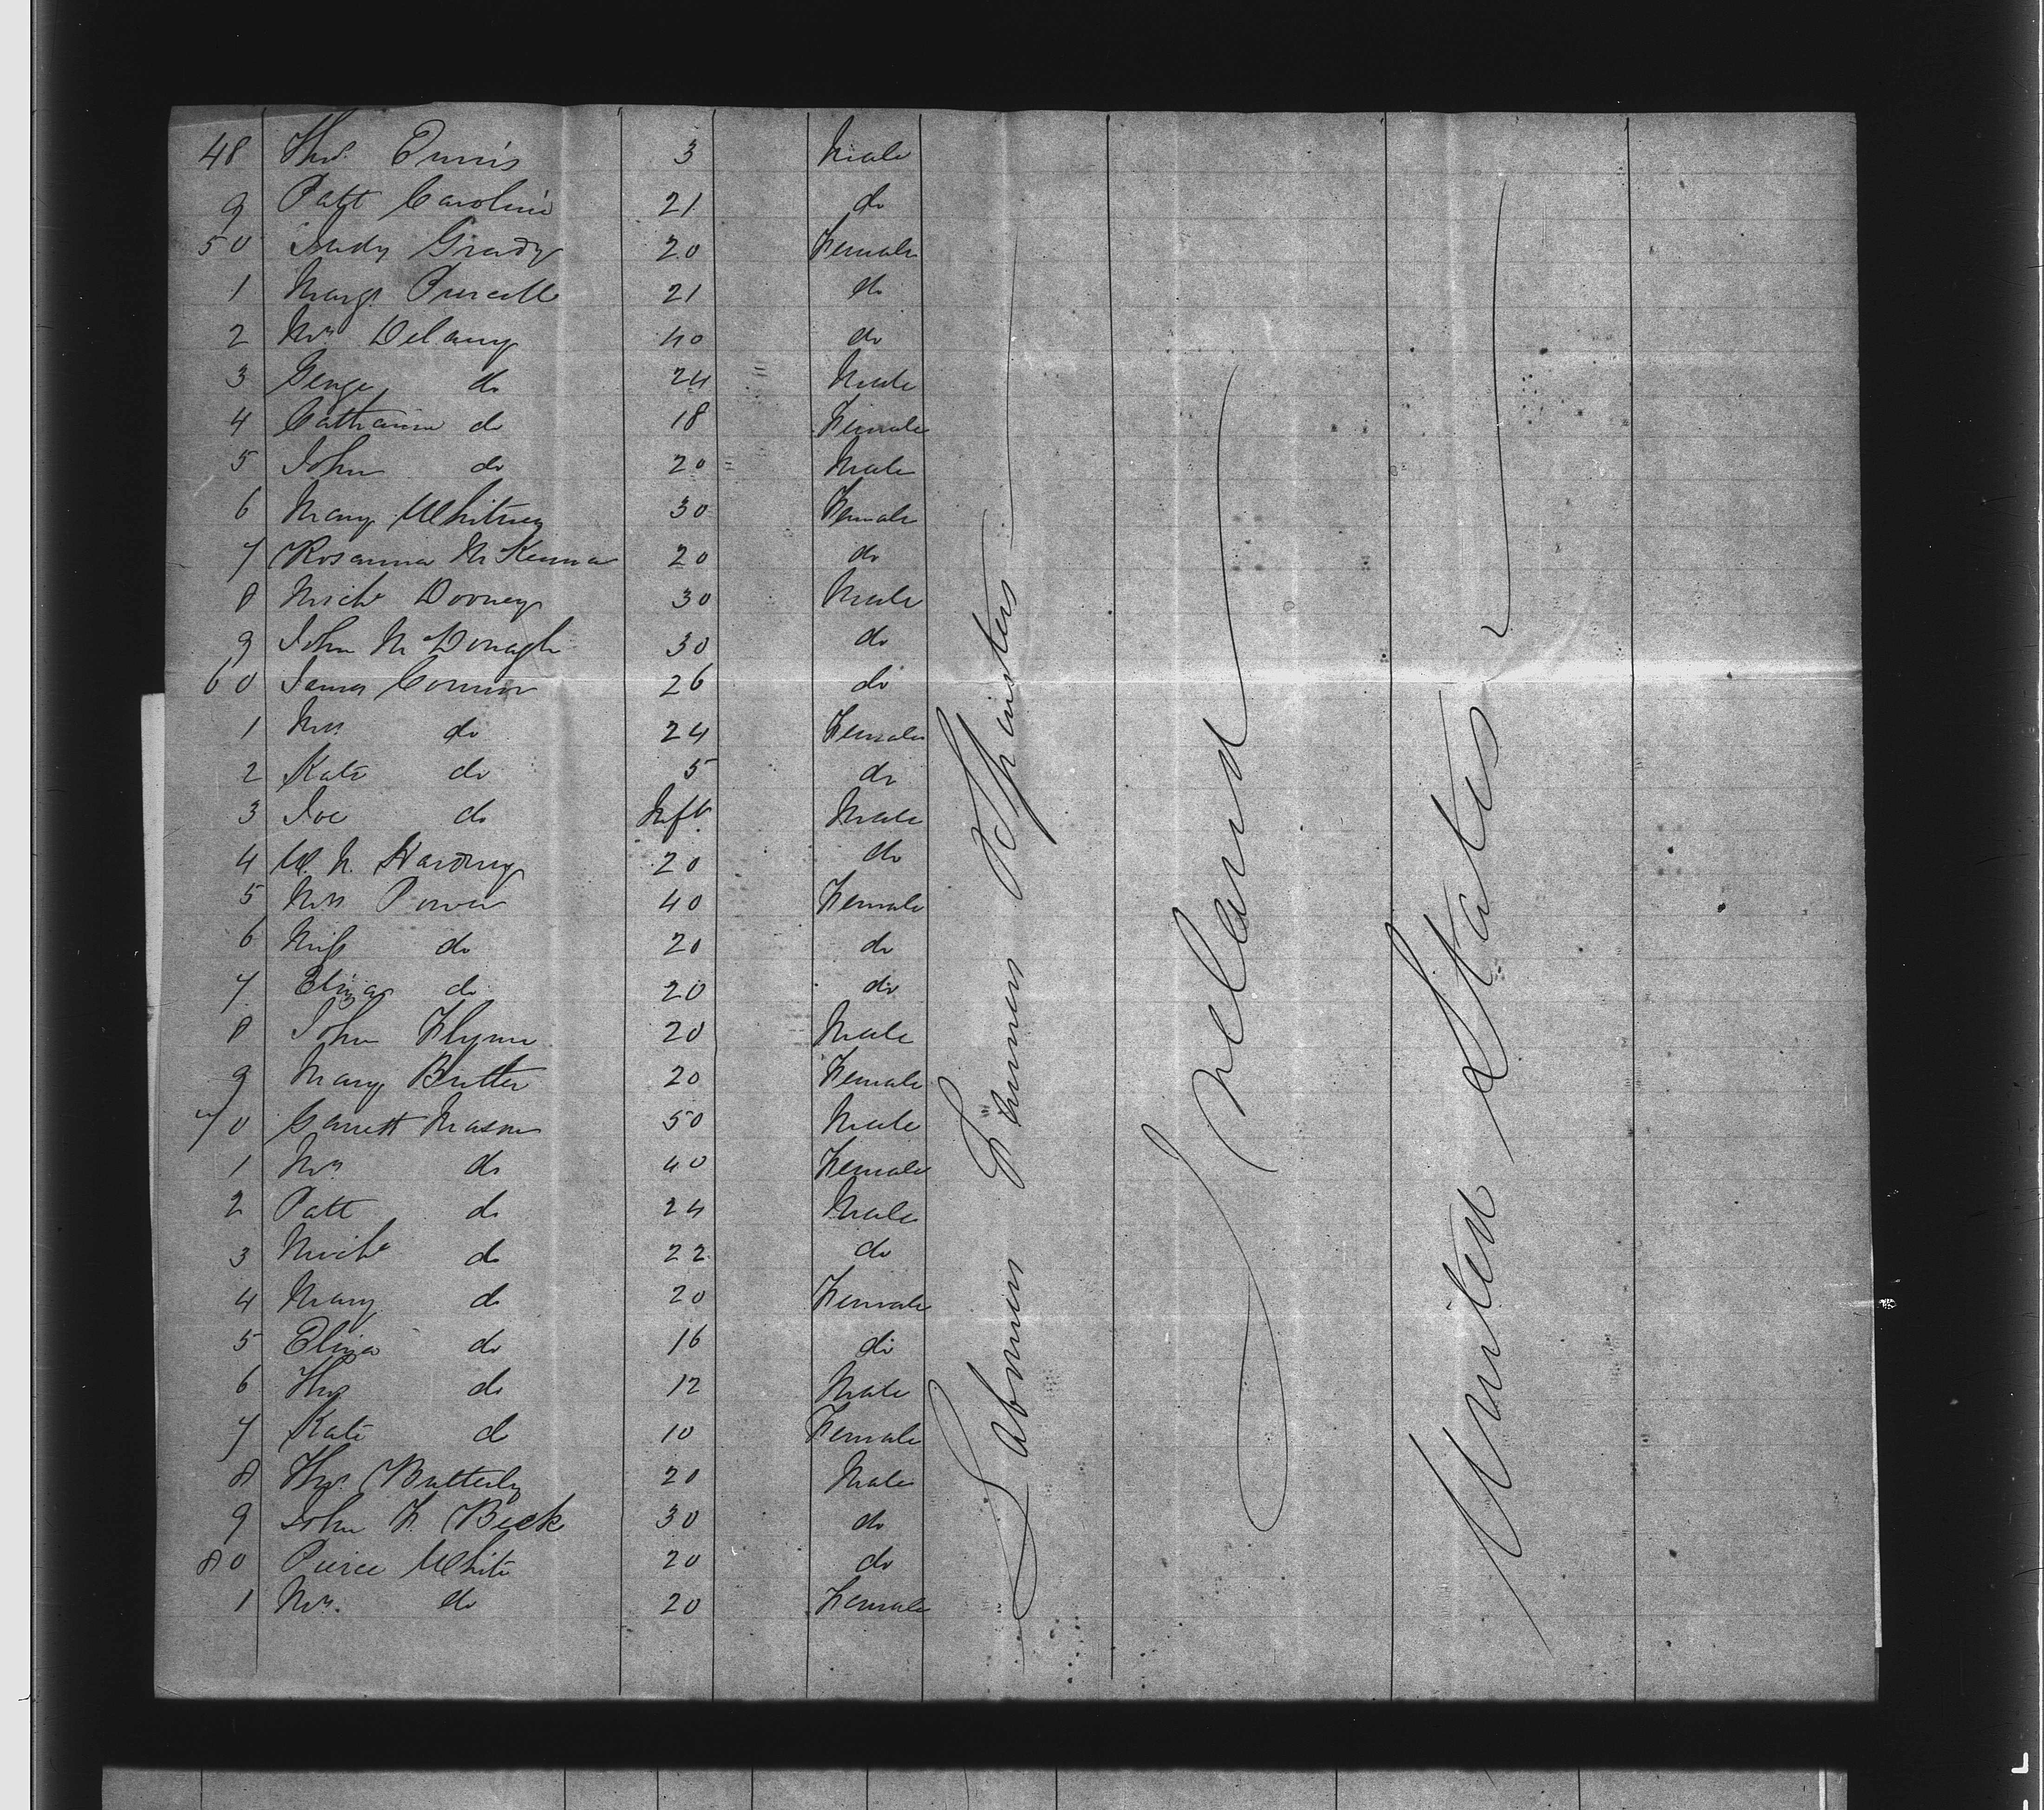 48 Thos. Ennis 3 Male
9 Patt Caroline 21 do
50 Judy Grady 20 Female
1 Margt. Purcell 21 do
2 Mrs Delany 40 do
3 George do 24 Male
4 Catharine do 18 Female
5 John do 20 Male
6 Mary Whitney 30 Female
7 Rosanna McKenna 20 do
8 Michl Dooney 30 Male
9 John McDonagh 30 do
60 James Connor 26 do
1 Mrs. do 24 Female
2 Kate do 5 do
3 Joe do Inft Male
4 W. H. Hardney 20 do
5 Mrs Power 40 Female
6 Miss do 20 do
7 Eliza do 20 do
8 John Flynn 20 Male
9 Mary Butler 20 Female
70 Garrett Mason 50 Male
1 Mrs do 40 Female
2 Patt do 24 Male
3 Michl do 22 do
4 Mary do 20 Female
5 Eliza do 16 do
6 Thos do 12 Male
7 Kate do 10 Female
8 Thos. Butterly 20 Male
9 John F. Beck 30 do
80 Pierce White 20 do
1 Mrs. do 20 Female
Labourers Farmers Spinsters
Ireland
United States